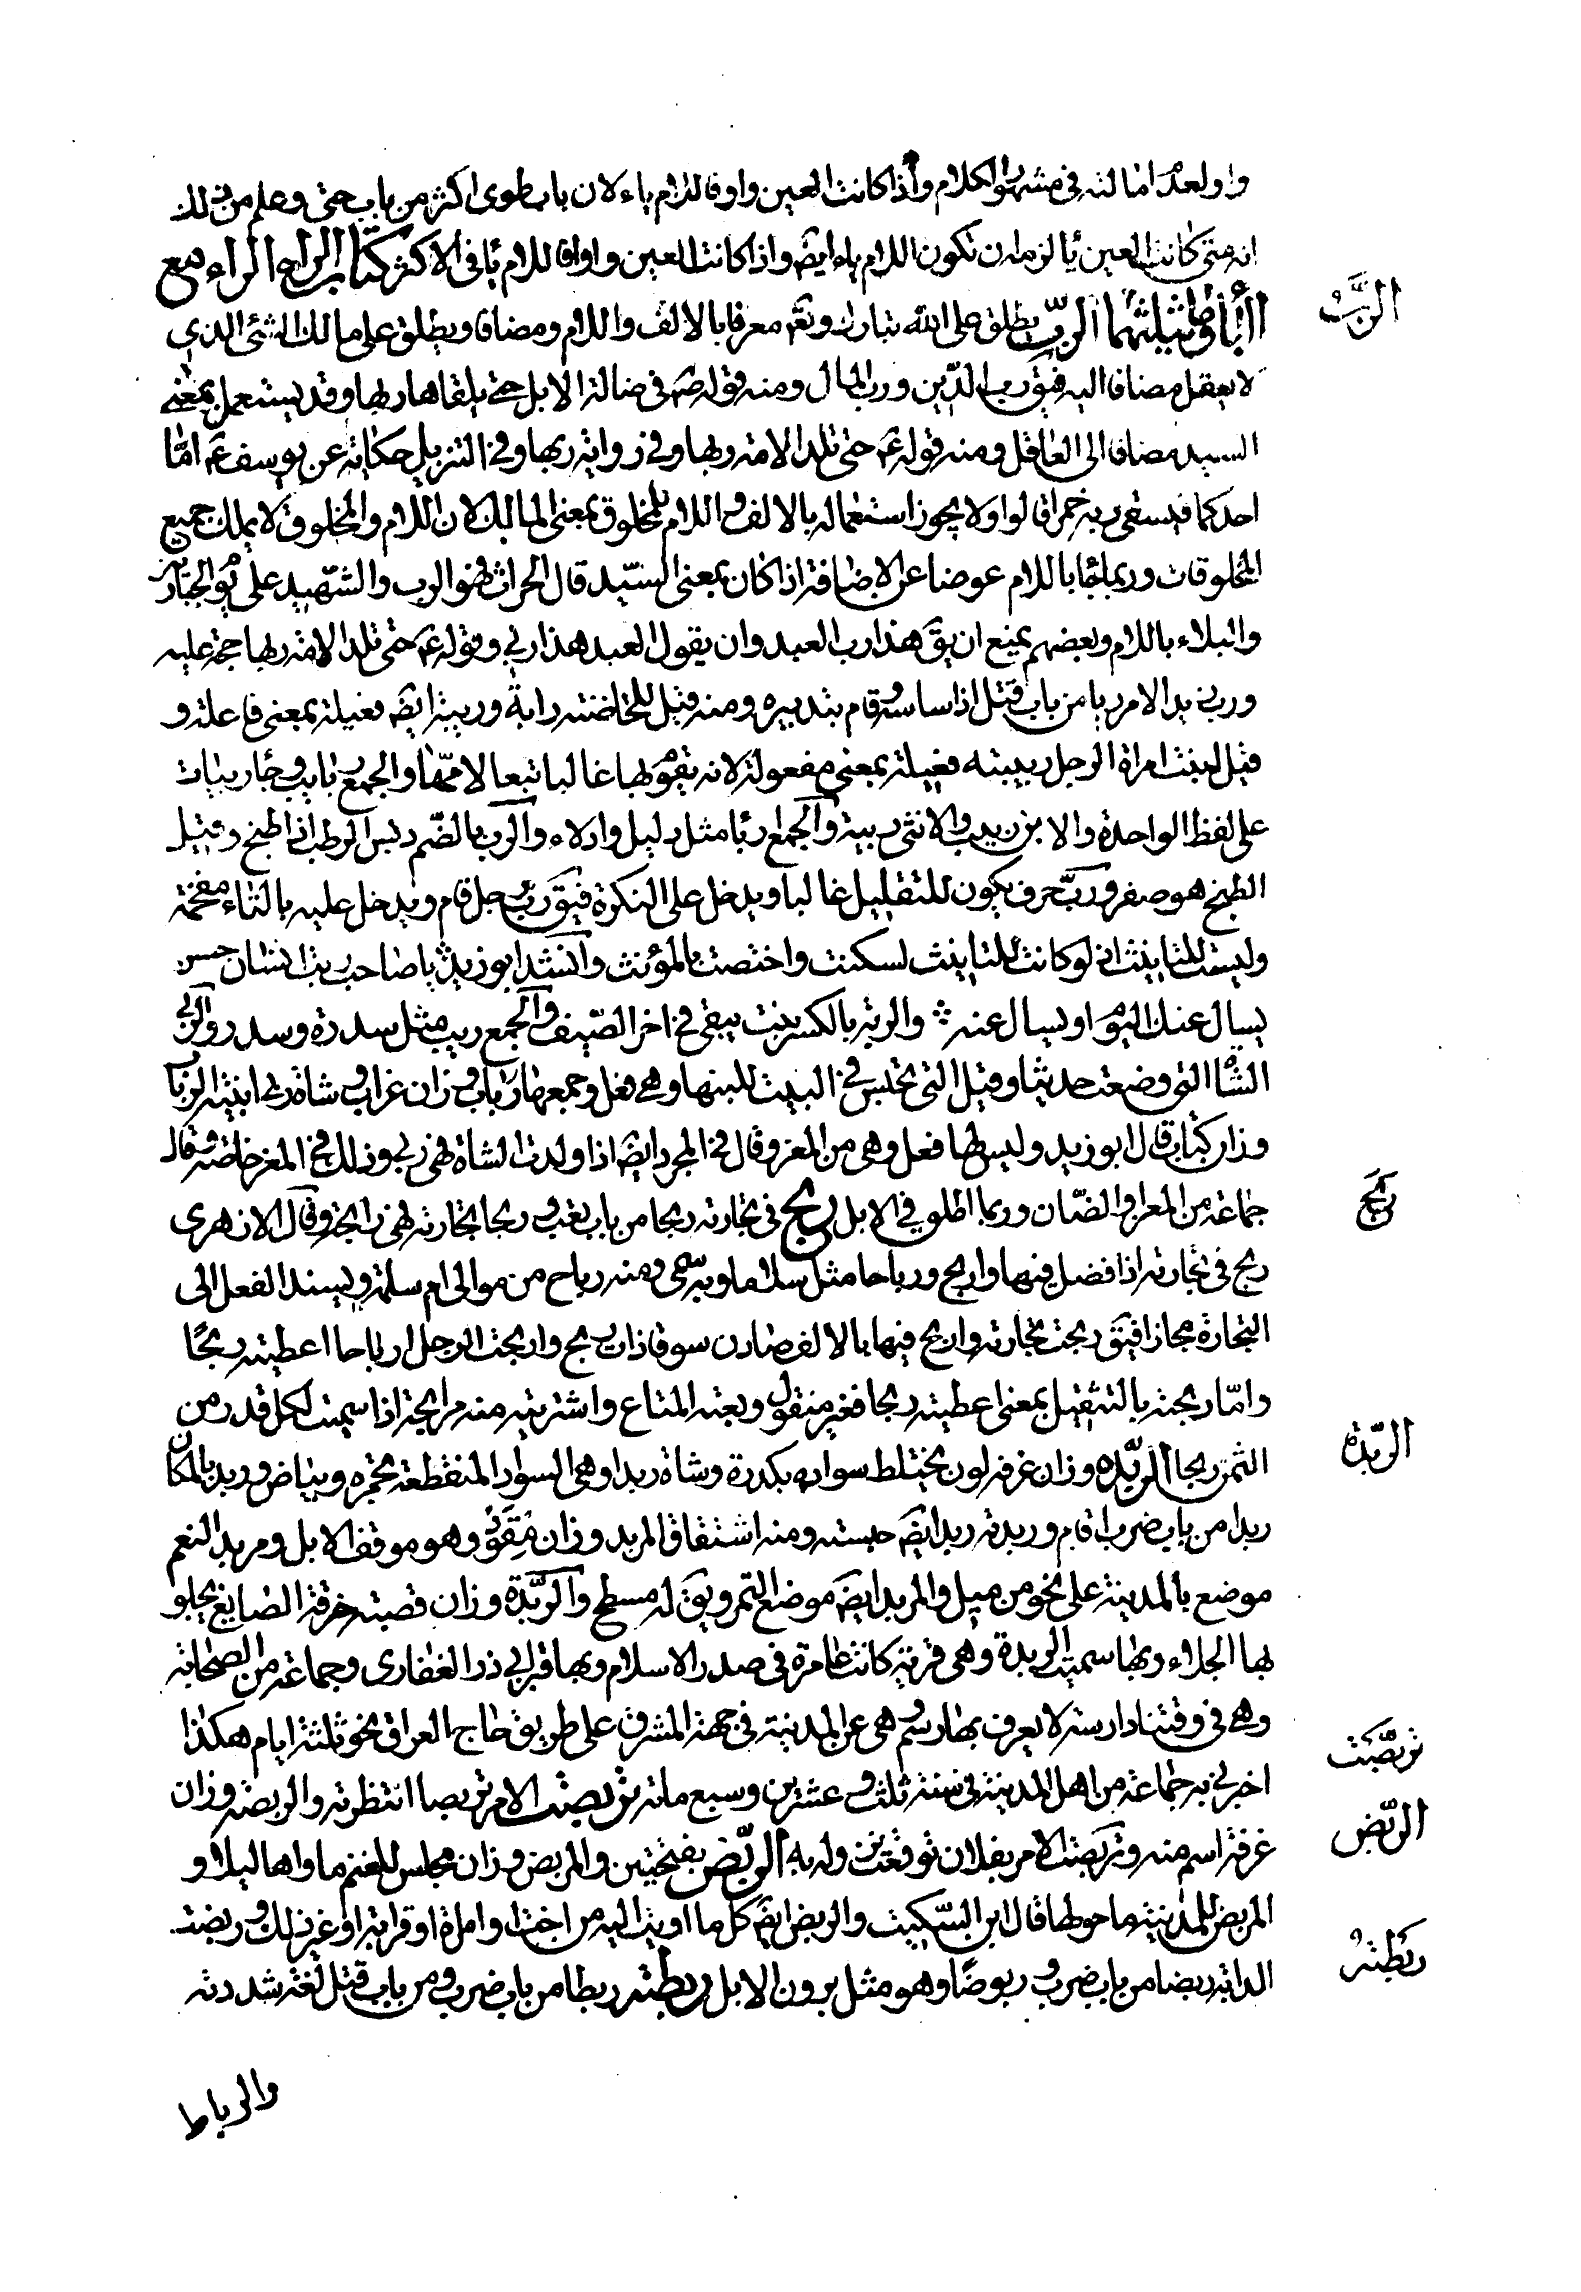 واو لعدم امالته في مشهور الكلام واذا كانت العين واوفا للام ياء لان باب طوى اكثر من باب حتى وعلم من ذلك
انه متى كانت العين يا لزم ان تكون اللام ياء ايضَ واذا كانت العين واوا فاللام يا في الاكثر كتاب الراء الراء مع
الباء وما يثلثهما الربّ يطلق على الله تبارك وتعَ معرفا بالالف واللام ومضافا ويطلق على مالك الشئ الذي
لا يعقل مضافا اليه فيقَ رب الدّين ورب المال ومنه قوله صَ في ضالة الابل حتى يلقاها ربها وقد يستعمل بمعنى
السيد مضافا الى العاقل ومنه قوله عَ حتى تلد الامة ربها وفي رواية ربها وفي التنزيل حكاية عن يوسف عَ امّا
احدكما فيسقى ربه خمرا قالوا ولا يجوز استعماله بالالف واللام للمخلوق بمعنى المالك لان اللام والمخلوق لا يملك جميع
المخلوقات وربما جا باللام عوضا عن الاضافة اذا كان بمعنى السّيد قال الحراث فهو الرب والشّهيد على يوم الحيارين
والبلاء بلاء وبعضهم يمنع ان يقَ هذا رب العبد وان يقول العبد هذا ربي وقوله عَ حتى تلد الامة ربها حجة عليه
ورب زيد الامر ربا من باب قتل اذا ساسه وقام بتدبيره ومنه قيل للحاضنة رابة وربيبة ايضَ فعيلة بمعنى فاعلة و
قيل لبنت امراة الرجل ربيبته فعيلة بمعنى مفعولة لانه يقوم بها غالبا تبعا لامّها والجمع ربايب وجا ربيبات
على لفظ الواحدة والابن ربيب والانثى ربيبة والجمع اربا مثل دليل وادلاء والرب بالضّم دبس الرطب اذا طبخ وقبل
الطبخ هو صقر وربّ حرف يكون للتقليل غالبا ويدخل على النكرة فيقَ رب رجل قام ويدخل عليه بالتاء مقحمة
وليست للتانيث اذ لو كانت للتانيث لسكنت واختصت بالمؤنث وانشد ابو زيد يا صاحب ربت انسان حسن
يسال عنك اليوم او يسال عنه والربة بالكسر نبت يبقى في اخر الصّيف والجمع ربب مثل سدرة وسدر والربى
الشاة التي وضعت حديثا وقيل التي تحلبس في البيت للبنها وهي فعلى وجمعها رباب وزان غراب وشاة ربى بينة الرباب
وزان كتاب قال ابو زيد وليس لها فعل وهي من المعز وقال في المجرد ايضَ اذا ولدت الشاة فهي ربى وذلك في المعز خاصة وقال
جماعة من المعز والضّان وربما اطلق في الابل ربح في تجارته ربحا من باب تعب وربحا تجارته فهي رابحة وقال الازهرى
ربح في تجارته اذا افضل فيها واربح ورباحا مثل سلاما وبه سمى ومنه رباح من موالى ام سلمة ويسند الفعل الى
التجارة مجازا فيقَ ربحت تجارته واربح فيها بالالف صادف سوقا ذات ربح واربحت الرجل ارباحا اعطيته ربحًا
وامّا ربحته بالتثقيل بمعنى اعطيته ربحا فغير منقول وبعته المتاع واشتريته منه مرابحة اذا سميت لكل قدر من
الثمن ربحا الربّده وزان غرفه لون يختلط سواده بكدرة وشاة ربداوهى السوداء المنقطعة بحمره وبياض وربد بالمكان
ربدا من باب ضرب اقام وربدته ربدا ايضَ حبسته ومنه اشتقاق المربد وزان مقود وهو موقف الابل ومربد النعم
موضع بالمدينة على نحو من ميل والمربد ايضَ موضع التمر ويقَ له مسطح والرّبذة وزان قصبة خرقة الصايغ يجلو
بها الجلاء وبها سميت الربدة وهي قرية كانت عامرة في صدر الاسلام وبها قبر ابي ذر الغفارى وجماعة من الصحابة
وهي في وقتنا دارسة لا يعرف بها رسم وهي عن المدينة في جهة المشرق على طريق حاج العراق نحو ثلثة ايام هكذا
اخبرني به جماعة من اهل المدينة في سنة ثلث وعشرين وسبع ماته تربصت الامر تربصا انتظرته والربصة وزان
غرفة اسم منه وتربصت الامر بفلان توقعت نزوله به الربّض بفتحتين والمربض وزان مجلس للغنم ماواها ليلا و
المربض للمدينة ما حولها قال ابن السّكيت والربض ايضَ كل ما اويت اليه من اخت او امراة او قرابة او غير ذلك وربضت
الدابة ربضا من باب ضرب وربوضًا وهو مثل بروك الابل ربطته ربطا من باب ضرب ومن باب قتل لغة شددته
والرباط
الربّ
ربح
الربّدة
تربّصت
الربّض
ربطته